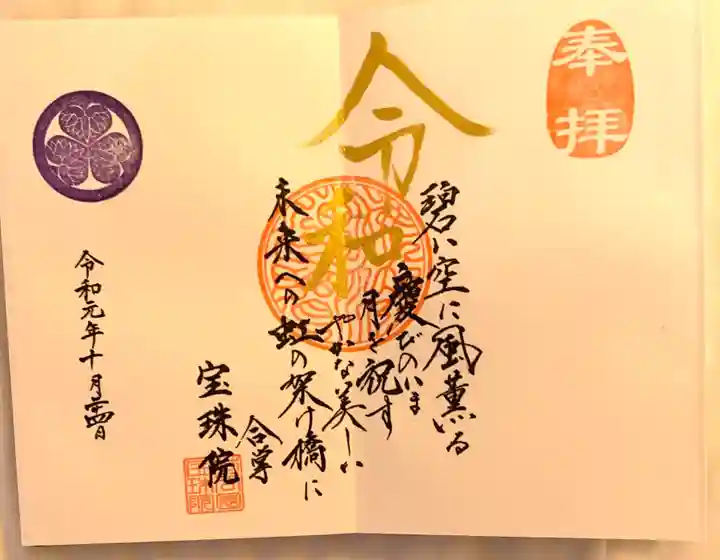 奉拝
令和
碧い空に風薫いる
慶びのいま
月を祝す
やかな美しい
未来への虹の架け橋に
合掌
宝珠院
令和元年十月廿四日